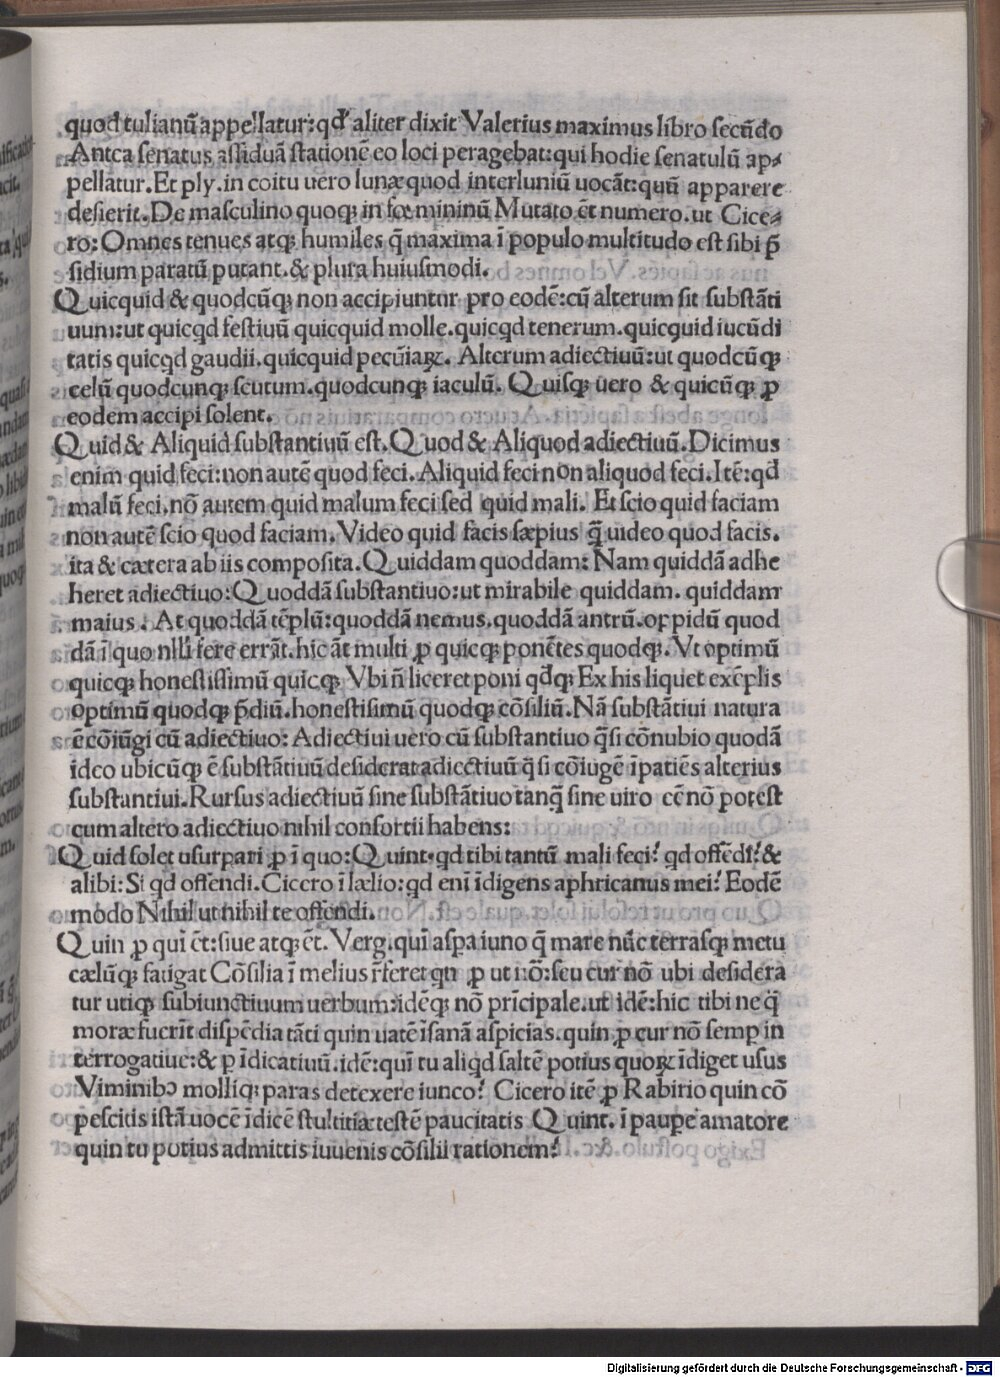 quod tulianū appellatur: qđ aliter dixit Valerius maximus libro secūdo
Antea senatus assiduā stationē eo loci peragebat: qui hodie senatulū ap⸗
pellatur. Et ply. in coitu uero lunæ quod interluniū uocāt: quū apparere
desierit. De masculino quoqꝫ in fœmininū Mutato ēt numero. ut Cice⸗
ro: Omnes tenues atqꝫ humiles q̄ maxima ī populo multitudo est sibi p̄
sidium paratū putant. & plura huiusmodi.
Quicquid & quodcūqꝫ non accipiuntur pro eodē: cū alterum sit substāti
uum: ut quicqd festiuū quicquid molle. quicqd tenerum. quicquid iucūdi
tatis quicqd gaudii. quicquid pecūiaꝝ. Alterum adiectiuū: ut quodcūqꝫ
celū quodcunqꝫ scutum. quodcunqꝫ iaculū. Quisqꝫ uero & quicūqꝫ ꝓ
eodem accipi solent.
Quid & Aliquid substantiuū est. Quod & Aliquod adiectiuū. Dicimus
enim quid feci: non autē quod feci. Aliquid feci non aliquod feci. Itē: qđ
malū feci. nō autem quid malum feci sed quid mali. Et scio quid faciam
non autē scio quod faciam. Video quid facis sæpius q̄ uideo quod facis.
ita & cætera ab iis composita. Quiddam quoddam: Nam quiddā adhe
heret adiectiuo: Quoddā substantiuo: ut mirabile quiddam. quiddam
maius. At quoddā tēplū: quoddā nemus. quoddā antrū. oppidū quod
dā ī quo nlli fere errāt. hic āt multi ꝓ quicqꝫ ponētes quodqꝫ. Vt optimū
quicqꝫ honestissimū quicqꝫ Vbi n̄ liceret poni qđqꝫ Ex his liquet exēplis
optimū quodqꝫ p̄diū. honestisimū quodqꝫ cōsiliū. Nā substātiui natura
ē cōiūgi cū adiectiuo: Adiectiui uero cū substantiuo q̄si cōnubio quodā
ideo ubicūqꝫ ē substātiuū desiderat adiectiuū q̄si cōiugē īpatiēs alterius
substantiui. Rursus adiectiuū sine substātiuo tanq̄ sine uiro cē nō potest
cum altero adiectiuo nihil consortii habens:
Quid solet usurpari ꝓ ī quo: Quint. qd tibi tantū mali feci? qd offēdi? &
alibi: Si qd offendi. Cicero ī lælio: qd eni īdigens aphricanus mei? Eodē
modo Nihil ut nihil te offendi.
Quin ꝓ qui ēt: siue atqꝫ ēt. Verg. quī aspa iuno q̄ mare nūc terrasqꝫ metu
cælūqꝫ fatigat Cōsilia ī melius r̄feret qn ꝓ ut nō: seu cur nō ubi desidera
tur utiqꝫ subiunctiuum uerbum: idēqꝫ nō prīcipale. ut idē: hic tibi ne q̄
moræ fuerīt dispēdia tāti quin uatē īsanā aspicias. quin ꝓ cur nō semp in
terrogatiue: & p īdicatiuū. idē: quī tu aliqd saltē potius quoꝝ īdiget usus
Viminibꝰ molliqꝫ paras detexere iunco? Cicero itē ꝓ Rabirio quin cō
pescitis istā uocē īdicē stultitiæ testē paucitatis Quint. ī paupe amatore
quin tu potius admittis iuuenis cōsilii rationem?
Digitalisierung gefördert durch die Deutsche Forschungsgemeinschaft - DFG